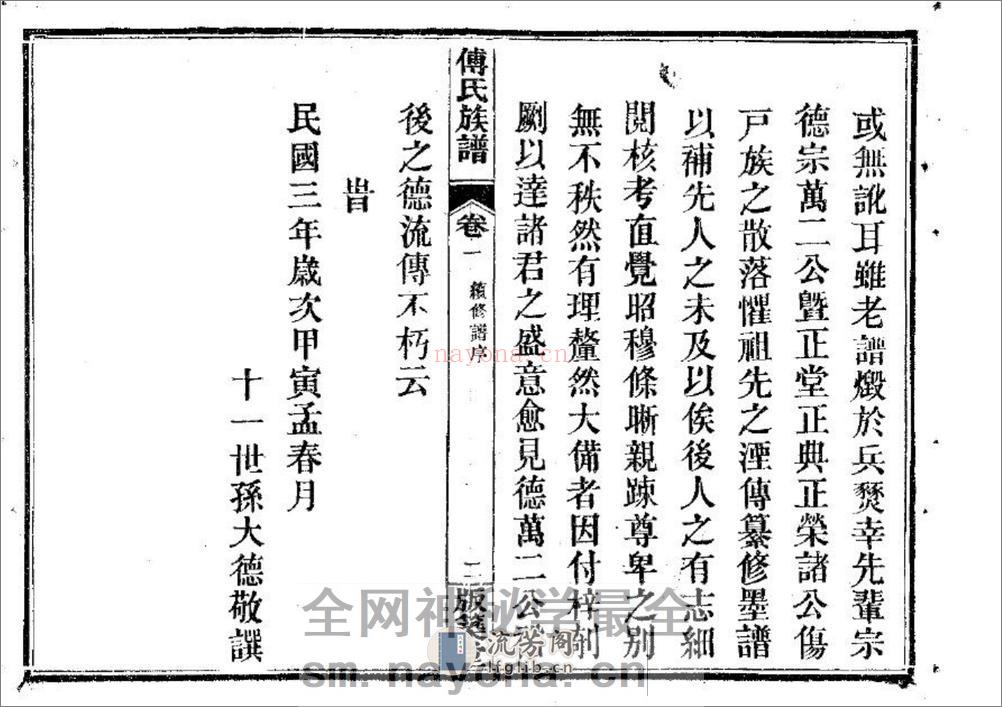 或無訛耳雖老譜燬於兵燹幸先輩宗
德宗萬二公曁正堂正典正榮諸公傷
戸族之散落懼祖先之湮傳纂修墨譜
以補先人之未及以俟後人之有志細
閱核考直覺昭穆條晰親踈尊卑之別
無不秩然有理釐然大備者因付梓刻
劂以達諸君之盛意愈見德萬二公
傅氏族譜
卷一
續修譜序
二
版
後之德流傳不朽云
旹
民國三年歲次甲寅孟春月
十一世孫大德敬譔
nayona.cn
全网神秘学最全
流芳阁
lfglib.cn
sm.nayona.cn